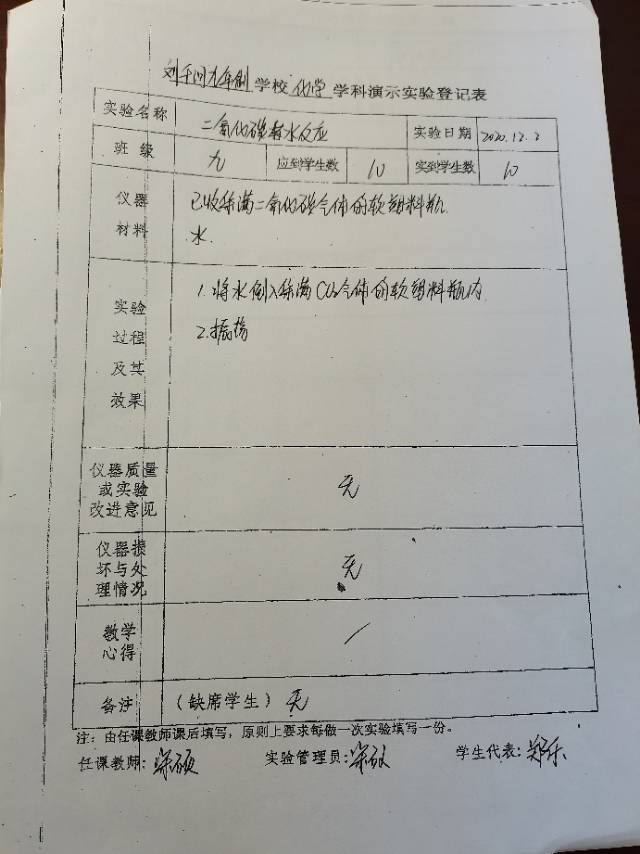 刘千问九年制学校化学学科演示实验登记表
实验名称 二氧化碳与水反应 实验日期 2020.12.2
班级 九 应到学生数 10 实到学生数 10
仪器 已收集满二氧化碳气体的软塑料瓶
材料 水.
实验 1.将水倒入集满CO2气体的软塑料瓶内
过程 2.振荡
及其
效果
仪器质量
或实验 无
改进意见
仪器损
坏与处 无
理情况
教学 /
心得
备注 (缺席学生) 无
注:由任课教师课后填写,原则上要求每做一次实验填写一份。
任课教师: 实验管理员: 学生代表:郑乐